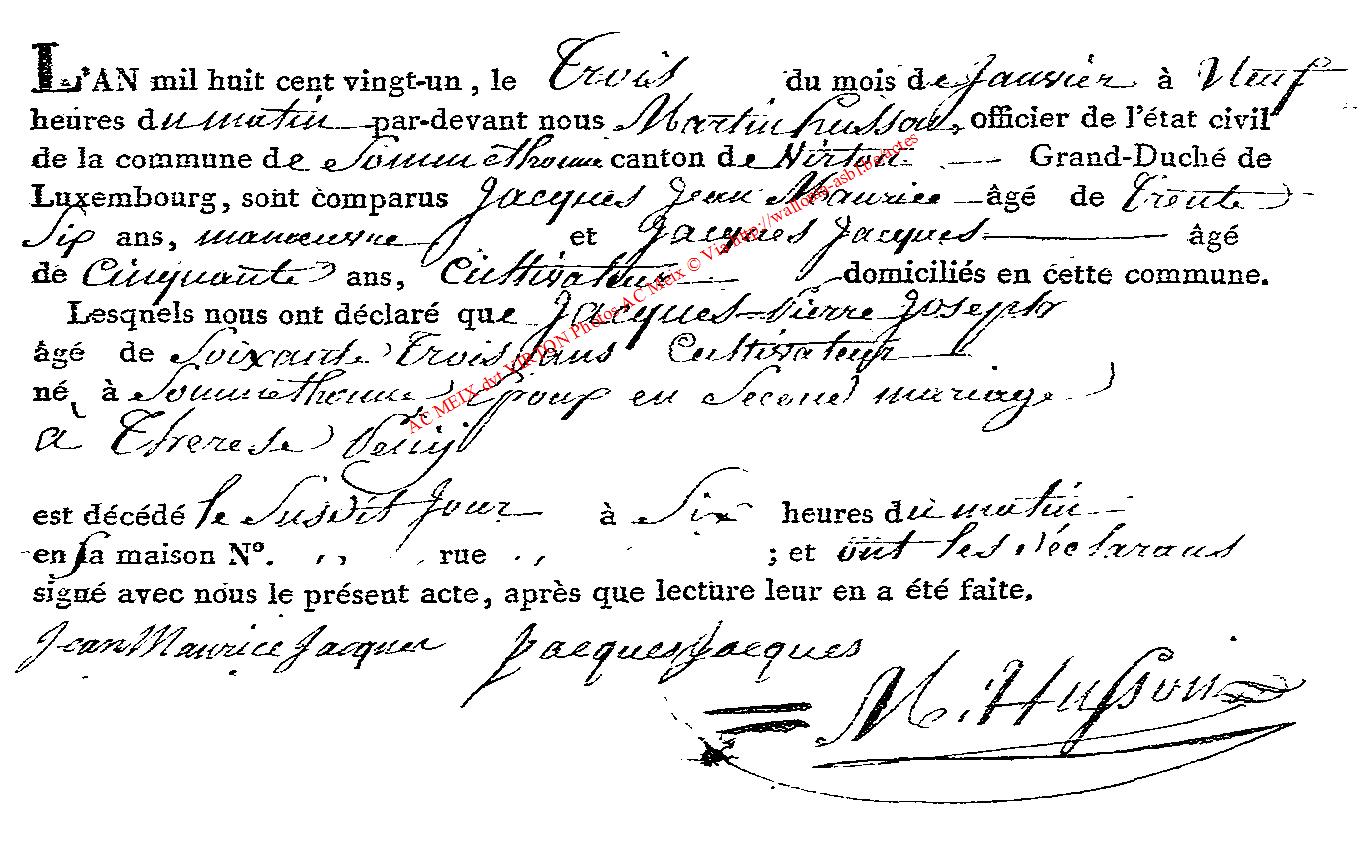 L'AN mil huit cent vingt-un, le Trois du mois de Janvier à Neuf
heures du matin par-devant nous Martin husson, officier de l'état civil
de la commune de Sommethonne canton de Virton Grand-Duché de
Luxembourg, sont comparus Jacques Jean Maurice âgé de Trente
Six ans, manœuvre et Jacques Jacques âgé
de Cinquante ans, Cultivateur domiciliés en cette commune.
Lesquels nous ont déclaré que Jacques Pierre Joseph
âgé de Soixante Trois ans Cultivateur
né à Sommethonne Epoux en Second mariage
à Therese
est décédé le Susdit Jour à Six heures du matin
en sa maison N°. ,, rue ,, ; et ont les déclarans
signé avec nous le présent acte, après que lecture leur en a été faite.
Jean Maurice Jacques Jacques Jacques
M. Husson
AC MEIX-dvt VIRTON Photos AC Meix © Via http://wallonia-asbl.be/actes